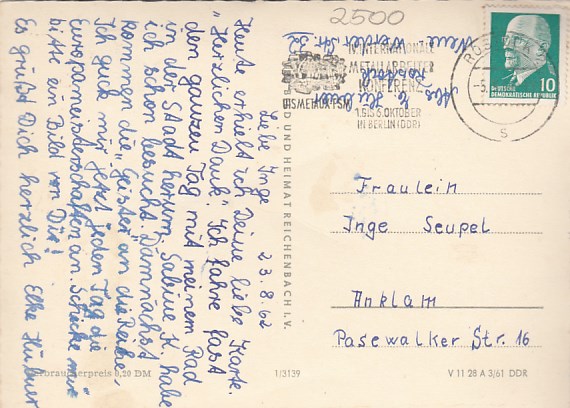 2500
Liebe Inge 23.8.62
Heut erhielt ich Deine liebe Karte.
"Herzlichen Dank". Ich fahre fast
den ganzen Tag mit meinem Rad
in der Stadt herum. Sabine K. habe
ich schon besucht. Demnächst
kommen die "Geister" an die Reihe.
Ich guck mir jetzt jeden Tag die
Europameisterschaften an. Schicke mir
bitte ein Bild von Dir!
Es grüßt Dich herzlich Elke Hübner
Neue Werder Str. 32
Rostock
Abs. E. Hübner
IV. INTERNATIONALE
METALLARBEITER
KONFERENZ
UISMETAL (FSM)
1. BIS 6. OKTOBER
IN BERLIN (DDR)
ROSTOCK
10
DEUTSCHE
DEMOKRATISCHE REPUBLIK
BILD UND HEIMAT REICHENBACH I. V.
Fräulein
Inge Seupel
Anklam
Pasewalker Str. 16
Verbraucherpreis 0,20 DM
1/3139
V 11 28 A 3/61 DDR